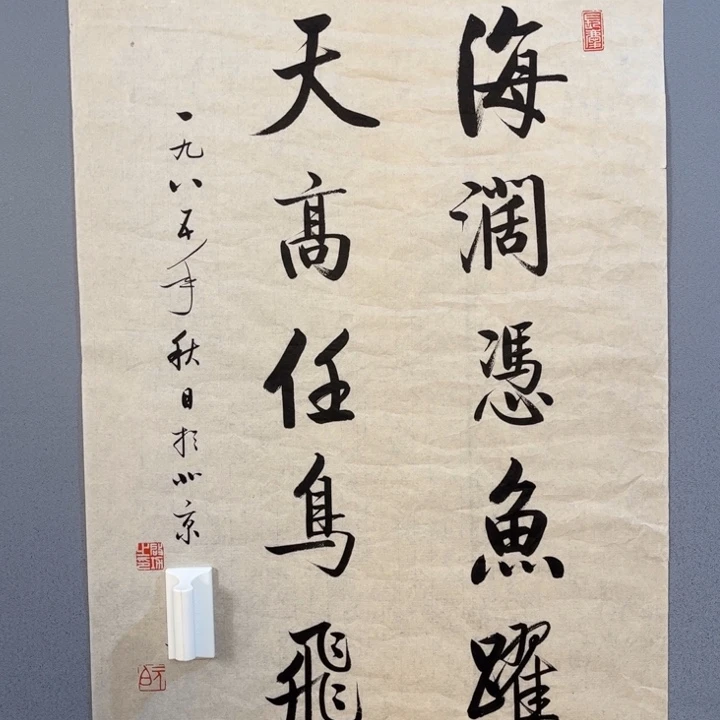 海濶憑魚躍
天髙任鳥飛
一九八五年秋日於北京